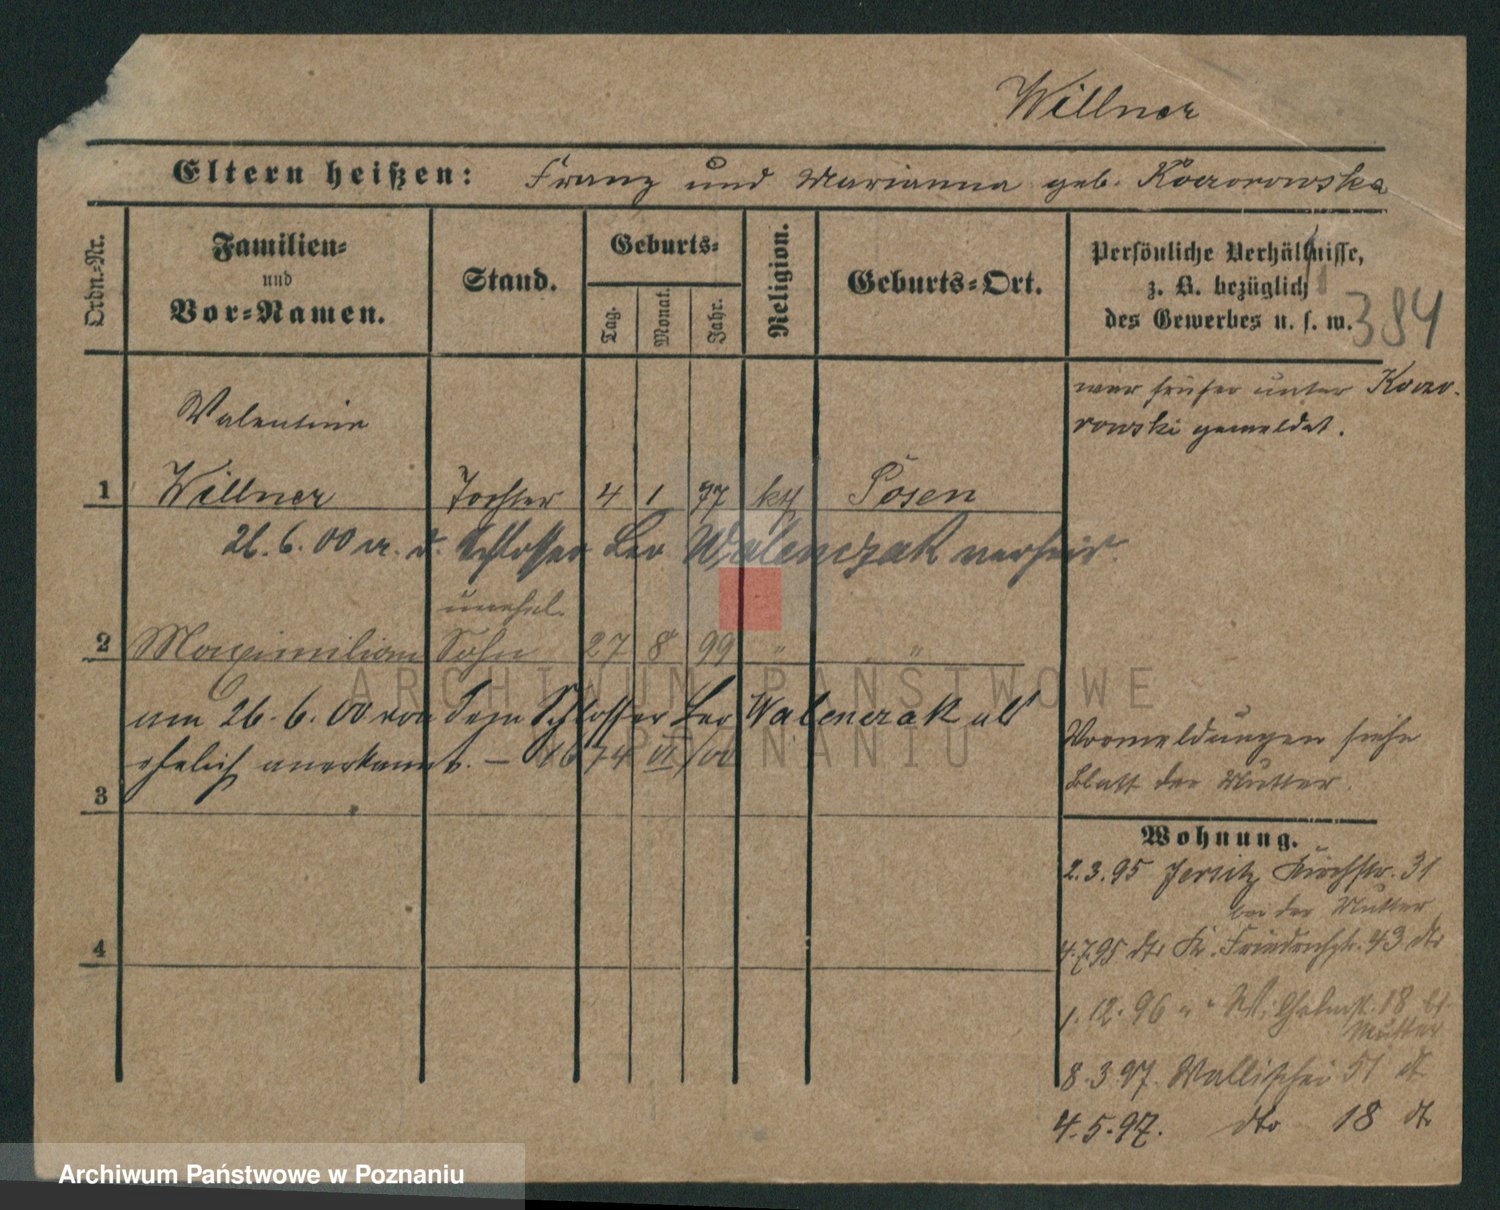 Willner
Eltern heißen: Franz und Marianna geb. Koczorowska
Ordn.-Nr.
Familien-
und
Vor-Namen.
Stand.
Geburts-
Tag.
Monat.
Jahr.
Religion.
Geburts-Ort.
Persönliche Verhältnisse,
z. B. bezüglich
des Gewerbes u. s. w.
384
war früher unter Koczo-
rowski gemeldet.
Valentine
1 Willner Tochter 4 1 77 kth Posen
26. 6. 00 d. Schlosser Leo Walenczak verheir.
unehel.
2 Maximilian Sohn 27 8 99 " "
am 26. 6. 00 von dem Schlosser Leo Walenczak als
ehelich anerkannt. – 1674 VI/00
3
Vormeldungen siehe
Blatt der Mutter.
Wohnung.
2.3.95 Jersitz Kirchstr. 31
bei der Mutter
4
4.7.95 dto Friedrichstr. 43 dto
1.12.96 " " 18
Mutter
8.3.97. Wallischei 51 dt
4.5.97. dto 18 dt
ARCHIWUM PAŃSTWOWE
W POZNANIU
Archiwum Państwowe w Poznaniu